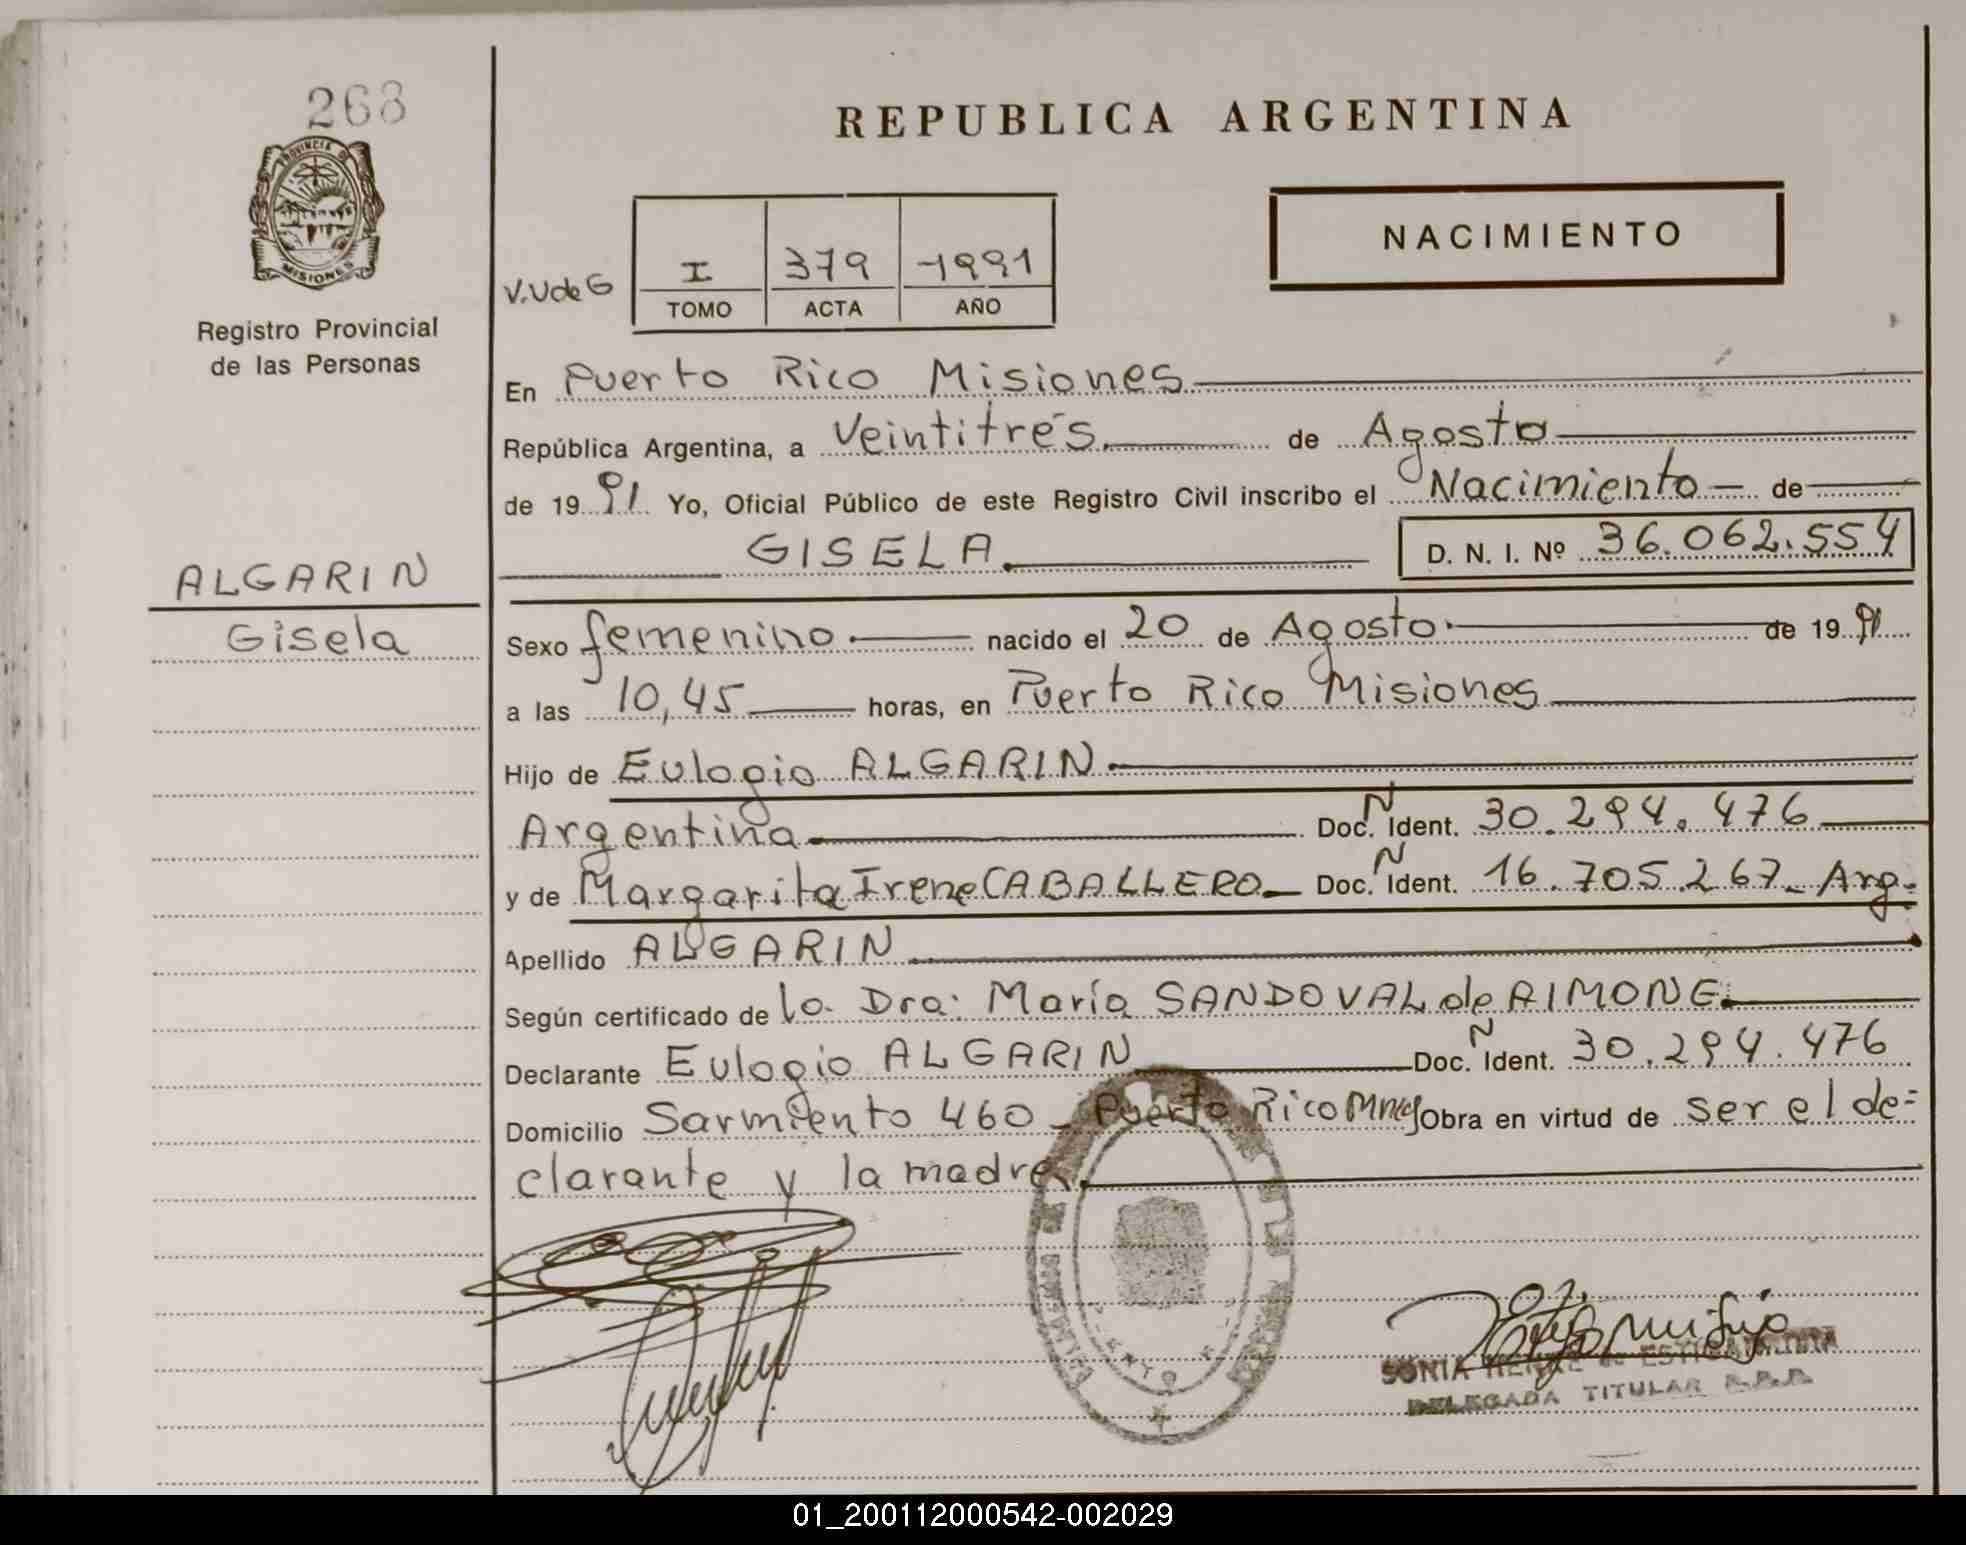 268
PROVINCIA DE
MISIONES
Registro Provincial
de las Personas
ALGARIN
Gisela
REPUBLICA ARGENTINA
NACIMIENTO
V.UdeG
I 379 1991
TOMO ACTA AÑO
En Puerto Rico Misiones
República Argentina, a Veintitrés de Agosto
de 19 91 Yo, Oficial Público de este Registro Civil inscribo el Nacimiento de
GISELA D. N. I. Nº 36.062.554
Sexo femenino nacido el 20 de Agosto de 19 91
a las 10,45 horas, en Puerto Rico Misiones
Hijo de Eulogio ALGARIN
Argentina Doc. N Ident. 30.294.476
y de Margarita Irene CABALLERO Doc. N Ident. 16.705.267 - Arg.
Apellido ALGARIN
Según certificado de la Dra: María SANDOVAL de AIMONE
Declarante Eulogio ALGARIN Doc. N Ident. 30.294.476
Domicilio Sarmiento 460 - Puerto Rico Mnes Obra en virtud de ser el de=
clarante y la madre
SONIA
DELEGADA TITULAR R.P.P.
01_200112000542-002029